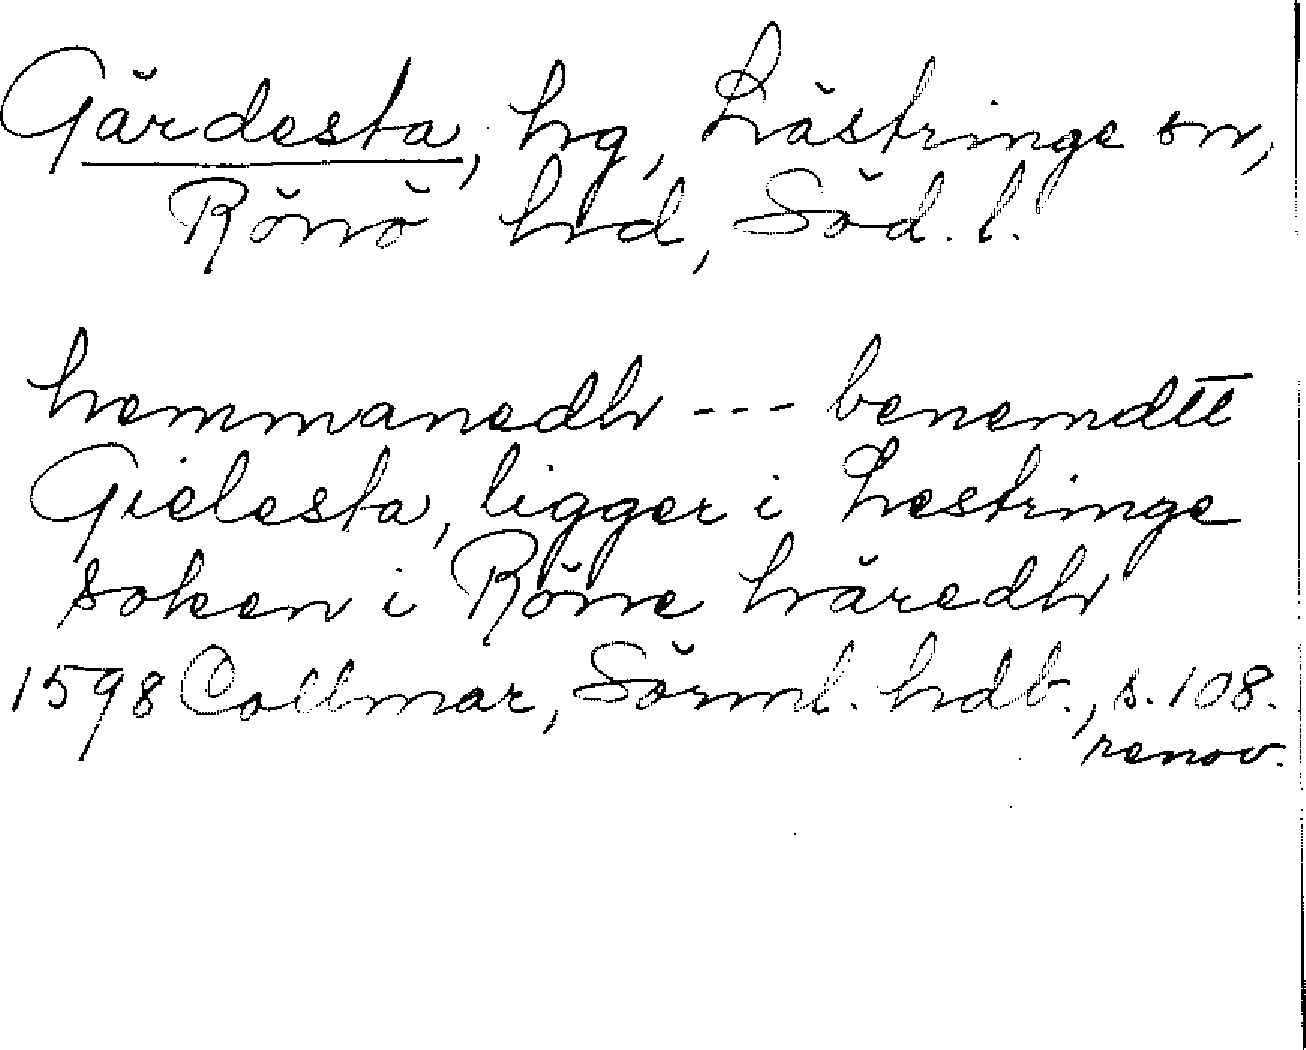 Gärdesta, hg, Lästringe sn,
Rönö hrd, Söd. l.
hemmanedh --- benemdtt
Gielesta, ligger i Lestringe
soken i Röne häredh
1598 Collmar, Sörml. hdb., s. 108.
renov.